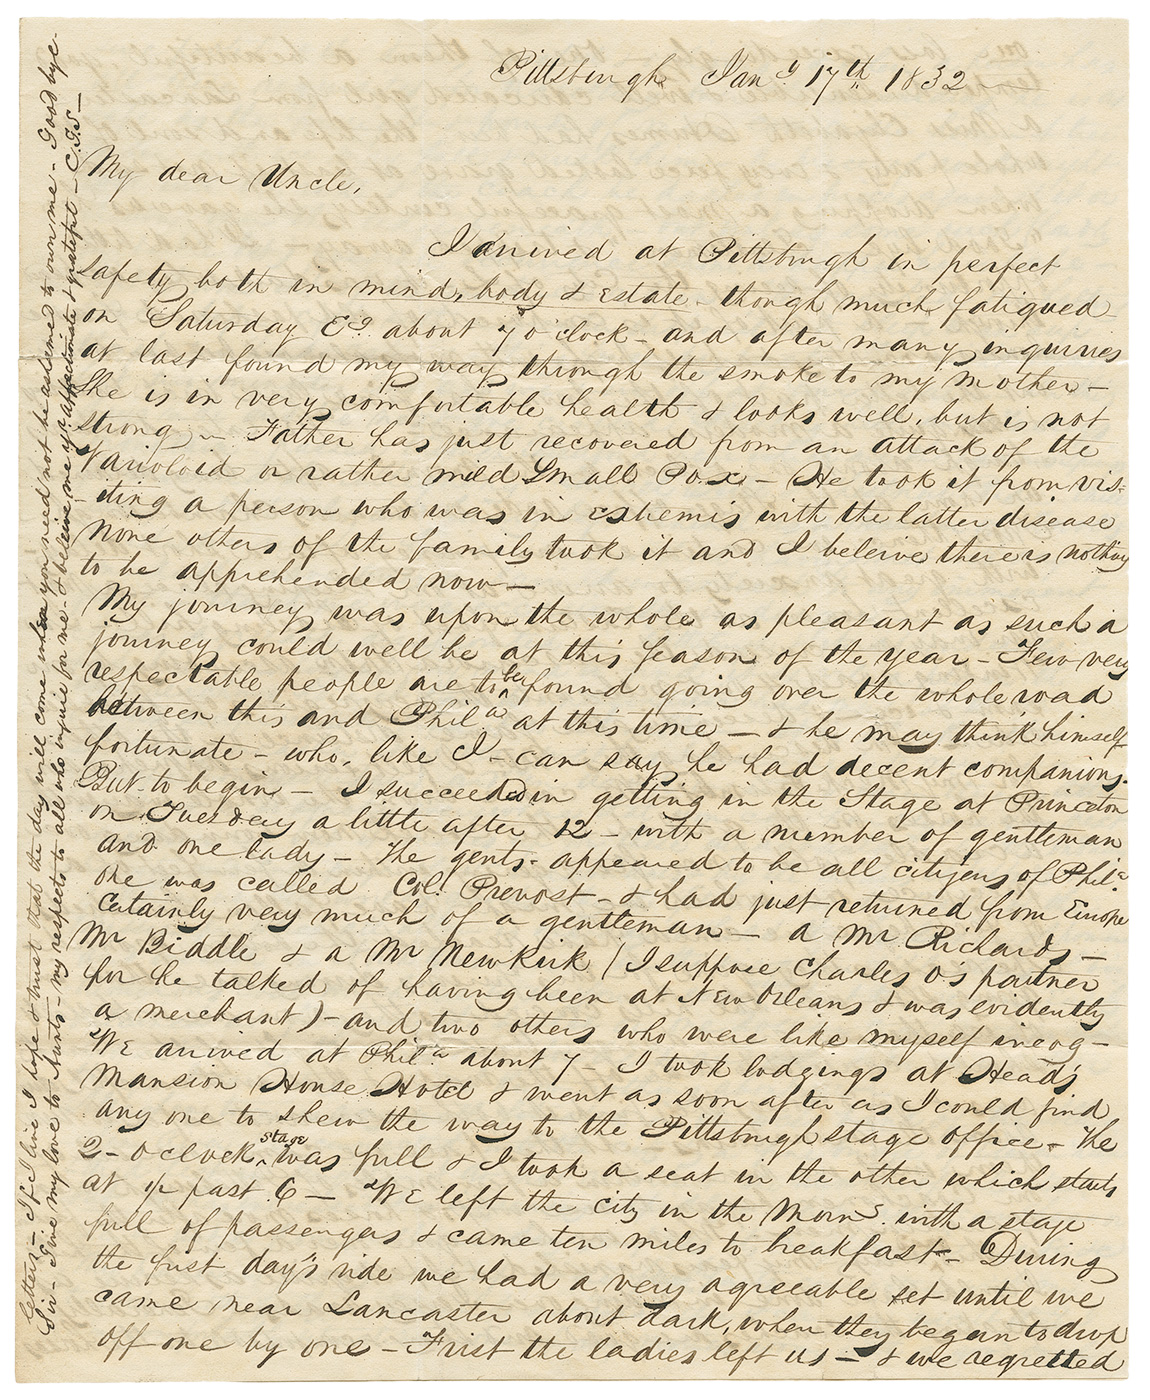 Pittsburgh Jany 17th 1832
My dear Uncle,
I arrived at Pittsburgh in perfect
safety both in mind, body & Estate - though much fatigued
on Saturday Eg about 7 o'clock - and after many inquiries
at last found my way through the smoke to my Mother -
She is in very comfortable health & looks well, but is not
strong - Father has just recovered from an attack of the
Varioloid or rather mild Small Pox - He took it from vis-
iting a person who was in with the latter disease
None others of the family took it and I beleive there is nothing
to be apprehended now -
My journey was upon the whole as pleasant as such a
journey could well be at this season of the year - Few very
respectable people are to be found going over the whole road
between this and Phila at this time - & he may think himself
fortunate - who, like I - can say he had decent companions.
But to begin - I succeeded in getting in the Stage at Princeton
on Tuesday a little after 12 - with a number of gentleman
and one lady - The gents. appeared to be all citizens of Phila.
One was called Col. Prevost - & had just returned from Europe
certainly very much of a gentleman - a Mr Richards -
Mr Biddle & a Mr Newkirk (I suppose Charles O's partner
for he talked of having been at New Orleans & was evidently
a merchant) - and two others who were like myself incog -
We arrived at Phila about 7 - I took lodgings at Head's
Mansion House Hotel & went as soon after as I could find
any one to shew the way to the Pittsburgh stage office - The
2 - oclock stage was full & I took a seat in the other which starts
at ½ past 6 - We left the city in the Morng. with a stage
full of passengers & came ten miles to breakfast - During
the first day's ride we had a very agreeable set until we
came near Lancaster about dark, when they began to drop
off one by one - Frist the ladies left us - & we regretted
letters - If I live I hope & trust that the day will come when you need not be ashamed to own me - Good bye.
Sir - Give my love to Aunts - my respects to all who inquire for me - & believe me yr. affectionate & grateful - C.I.S -